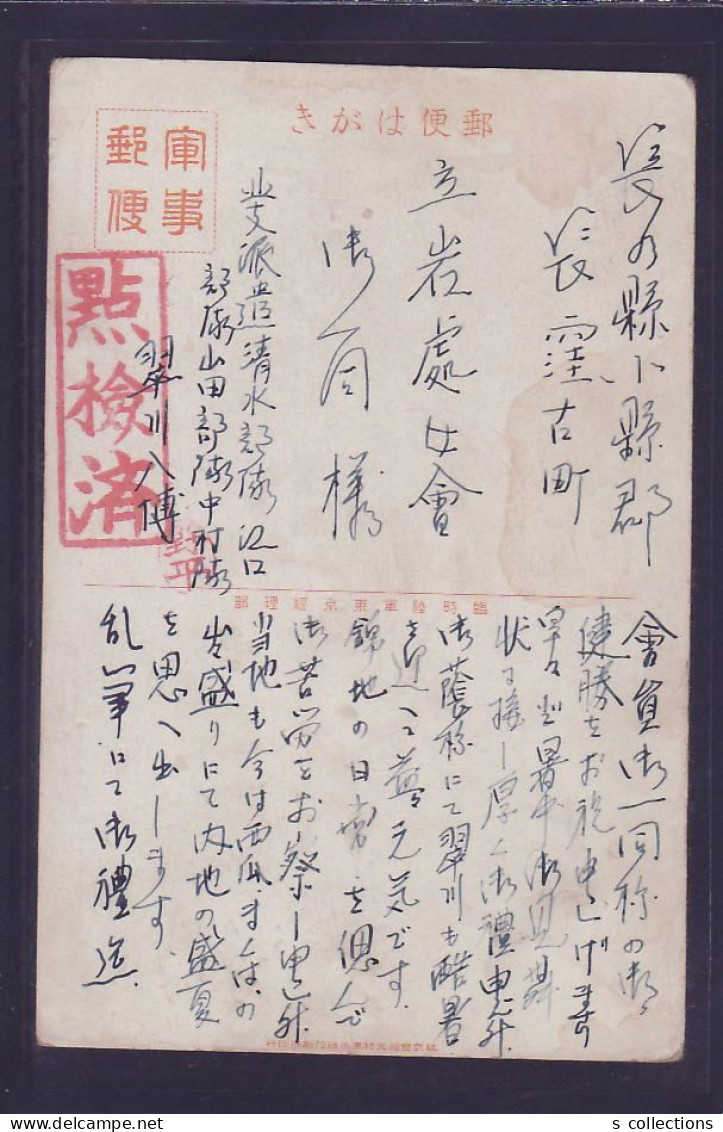 郵便はがき
軍事
郵便
點檢済
長野縣小縣郡
長窪古町
立岩處女會
御一同様
北支派遣清水部隊江口
部隊山田部隊中村隊
翠川八傳
臨時陸軍東京經理部
會員御一同称の御
健勝をお祝申し上げます
早々と暑中御見舞
状に接し厚く御禮申上げ
御蔭称にて翠川も酷暑
を迎へて益々元気です
錦地の日常を偲んで
御苦労とお察し申上げ
当地も今は西瓜まくはの
出盛りにて内地の盛夏
を思ひ出します
乱筆にて御禮迄
s collections